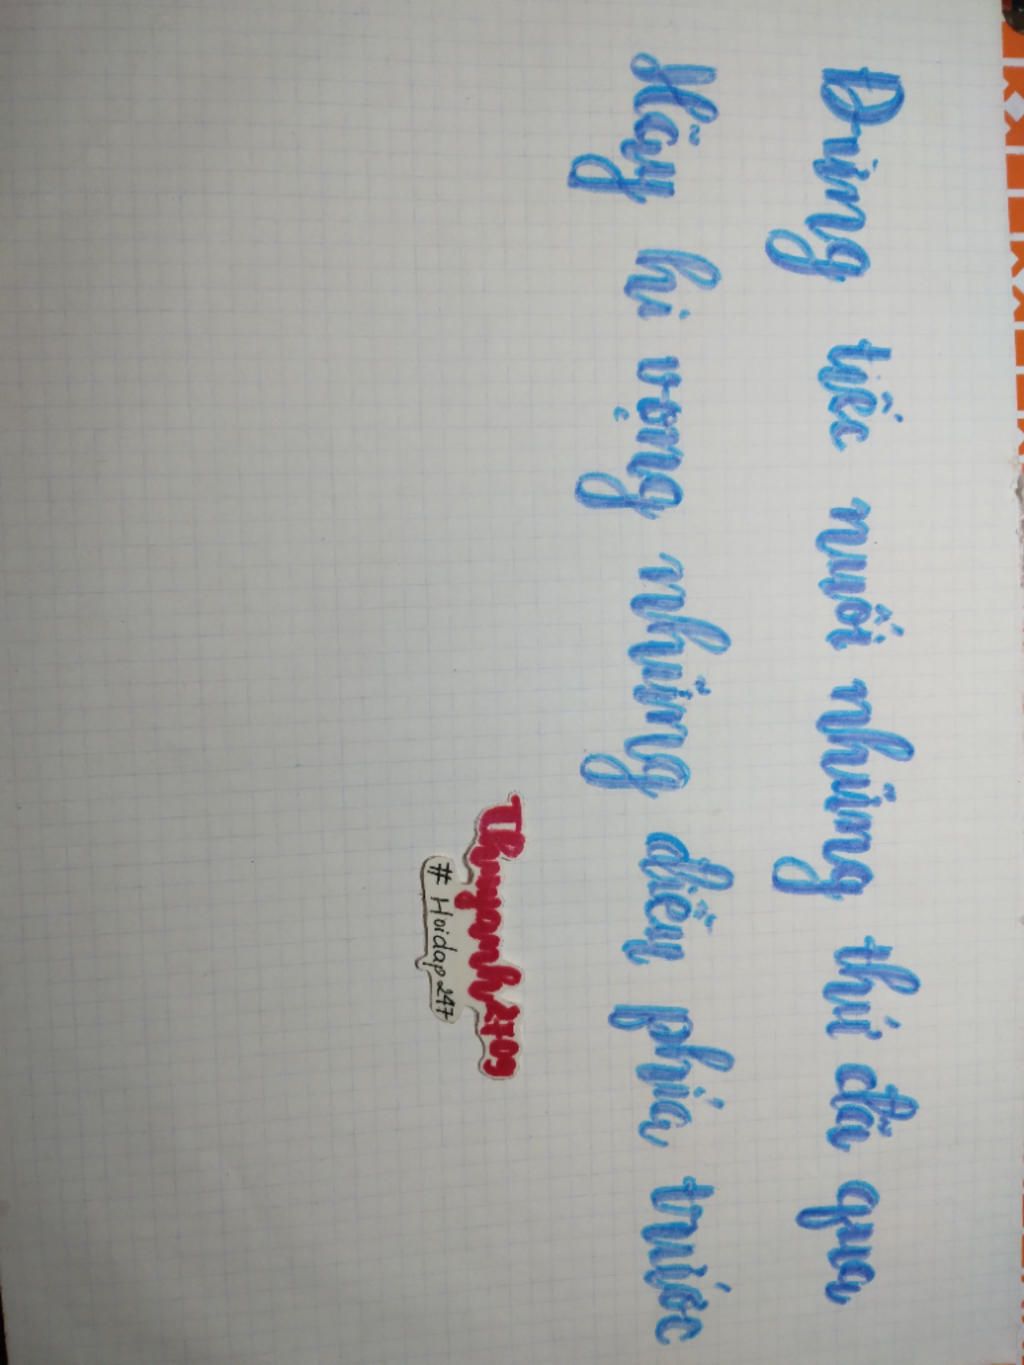 Đừng tiếc nuối những thứ đã qua
Hãy hi vọng những điều phía trước
Thuyanh2709
#Hoidap247